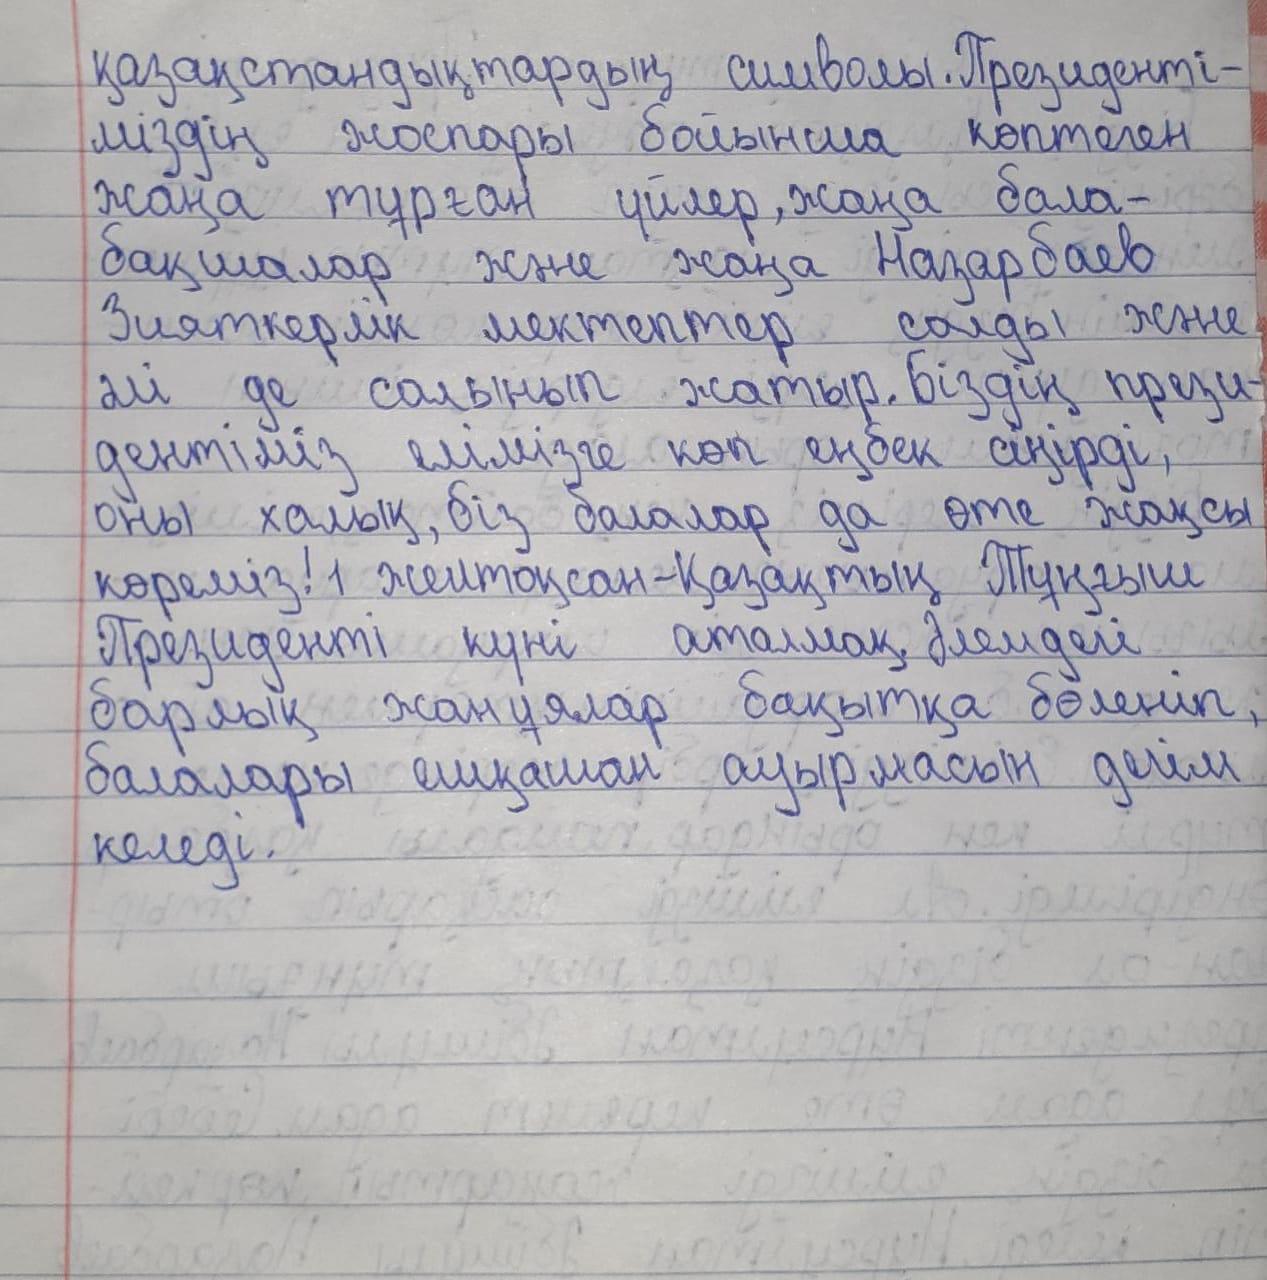 қазақстандықтардың символы. Президенті-
міздің жоспары бойынша көптеген
жаңа тұрған үйлер, жаңа бала-
бақшалар және жаңа Назарбаев
Зияткерлік мектептер салды және
әлі де салынып жатыр. Біздің прези-
дентіміз елімізге көп еңбек сіңірді,
оны халық, біз балалар да өте жақсы
көреміз! 1 желтоқсан-Қазақтың Тұңғыш
Президенті күні аталмақ. Әлемдей
барлық жанұялар бақытқа бөленіп,
балалары ешқашан ауырмасын дейім
келеді.